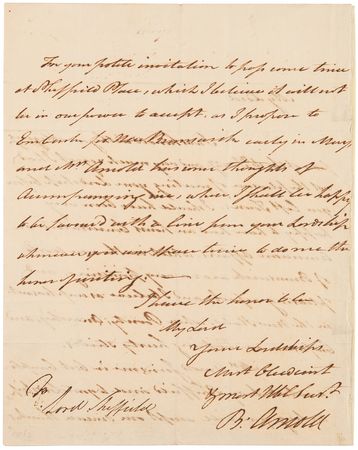 For your polite invitation to pass some time
at Sheffield Place, which I believe it will not
be in our power to accept. as I propose to
Embark for New Brunswick early in May
and Mrs Arnold has some thoughts of
Accompanying me, where I shall be happy
to be favored with a line from your Lordship
whenever you can the time to do me the
honor
I have the honor to be
My Lord
Your Lordships
Most Obedient
Hble Servt
B. Arnold
Lord Sheffield